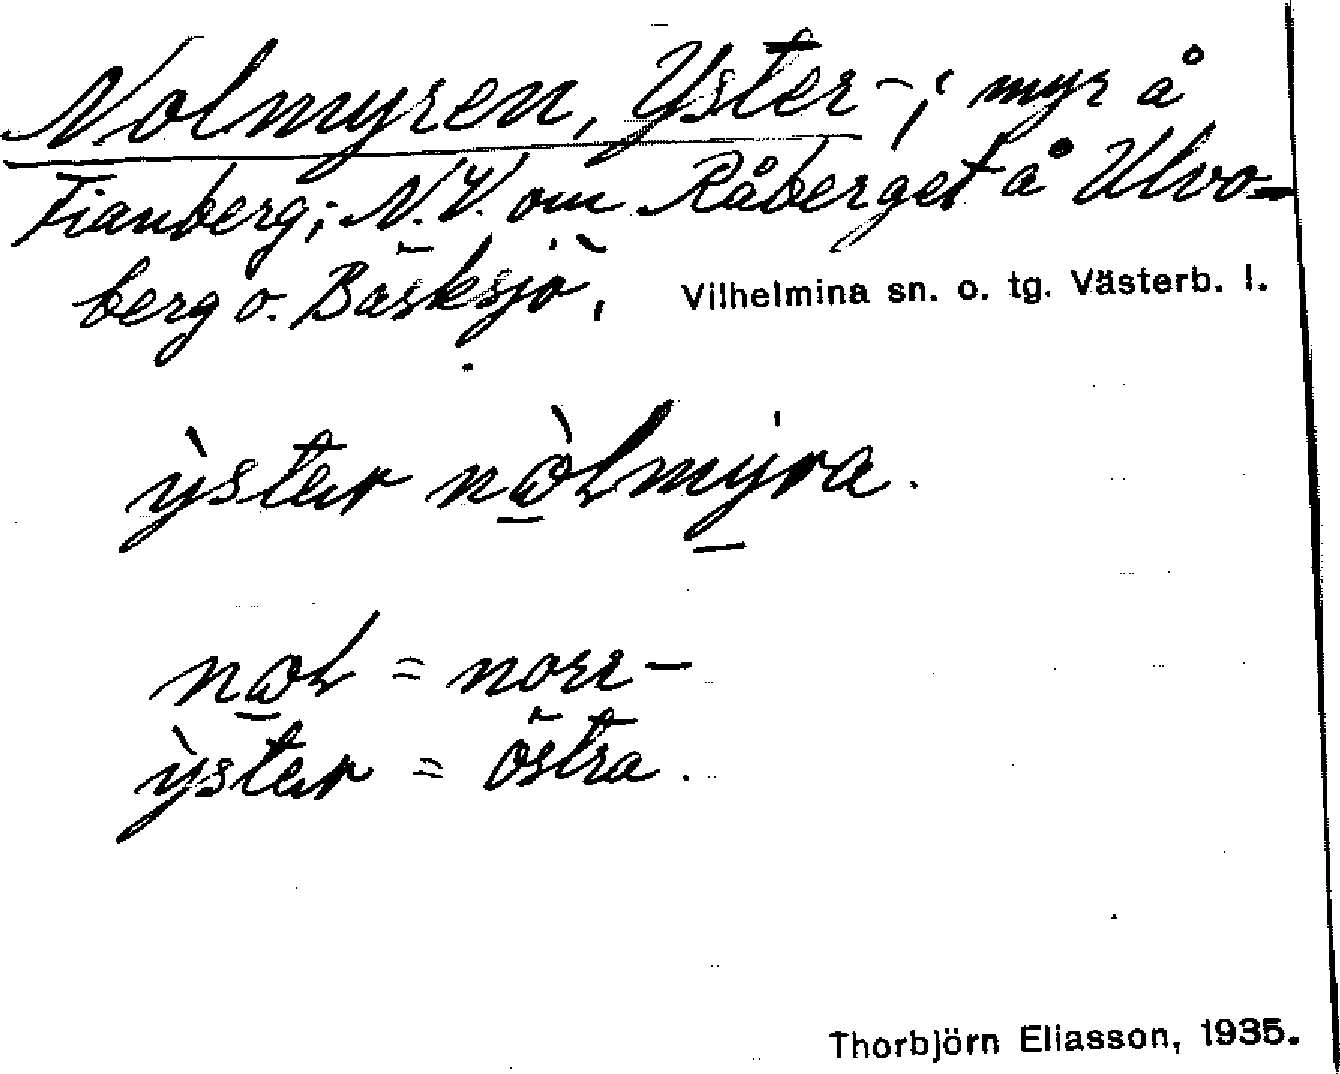 Nolmyren, Yster-; myr å
Fianberg; N.V. om Råberget å Ulvo-
berg o. Bäsksjö. Vilhelmina sn. o. tg. Västerb. l.
ỳster nòlmyra.
nol = norr-
ỳster = östra.
Thorbjörn Eliasson, 1935.